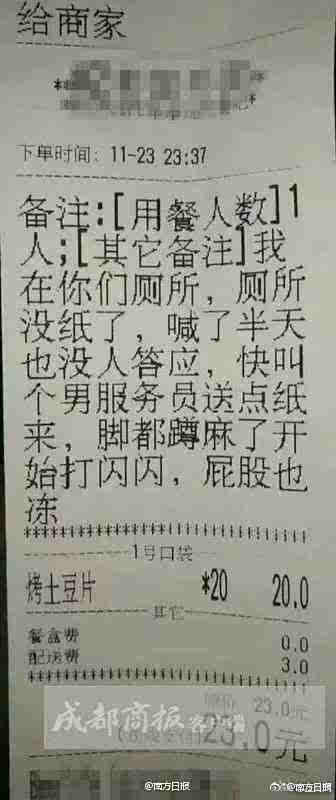 给商家
下单时间: 11-23 23:37
备注:[用餐人数]1
人;[其它备注]我
在你们厕所，厕所
没纸了，喊了半天
也没人答应，快叫
个男服务员送点纸
来，脚都蹲麻了开
始打闪闪，屁股也
冻
1号口袋
烤土豆片 *20 20.0
其它
餐盒费 0.0
配送费 3.0
23.0元
成都商报 客户端
23.0元
@南方日报 @南方日报